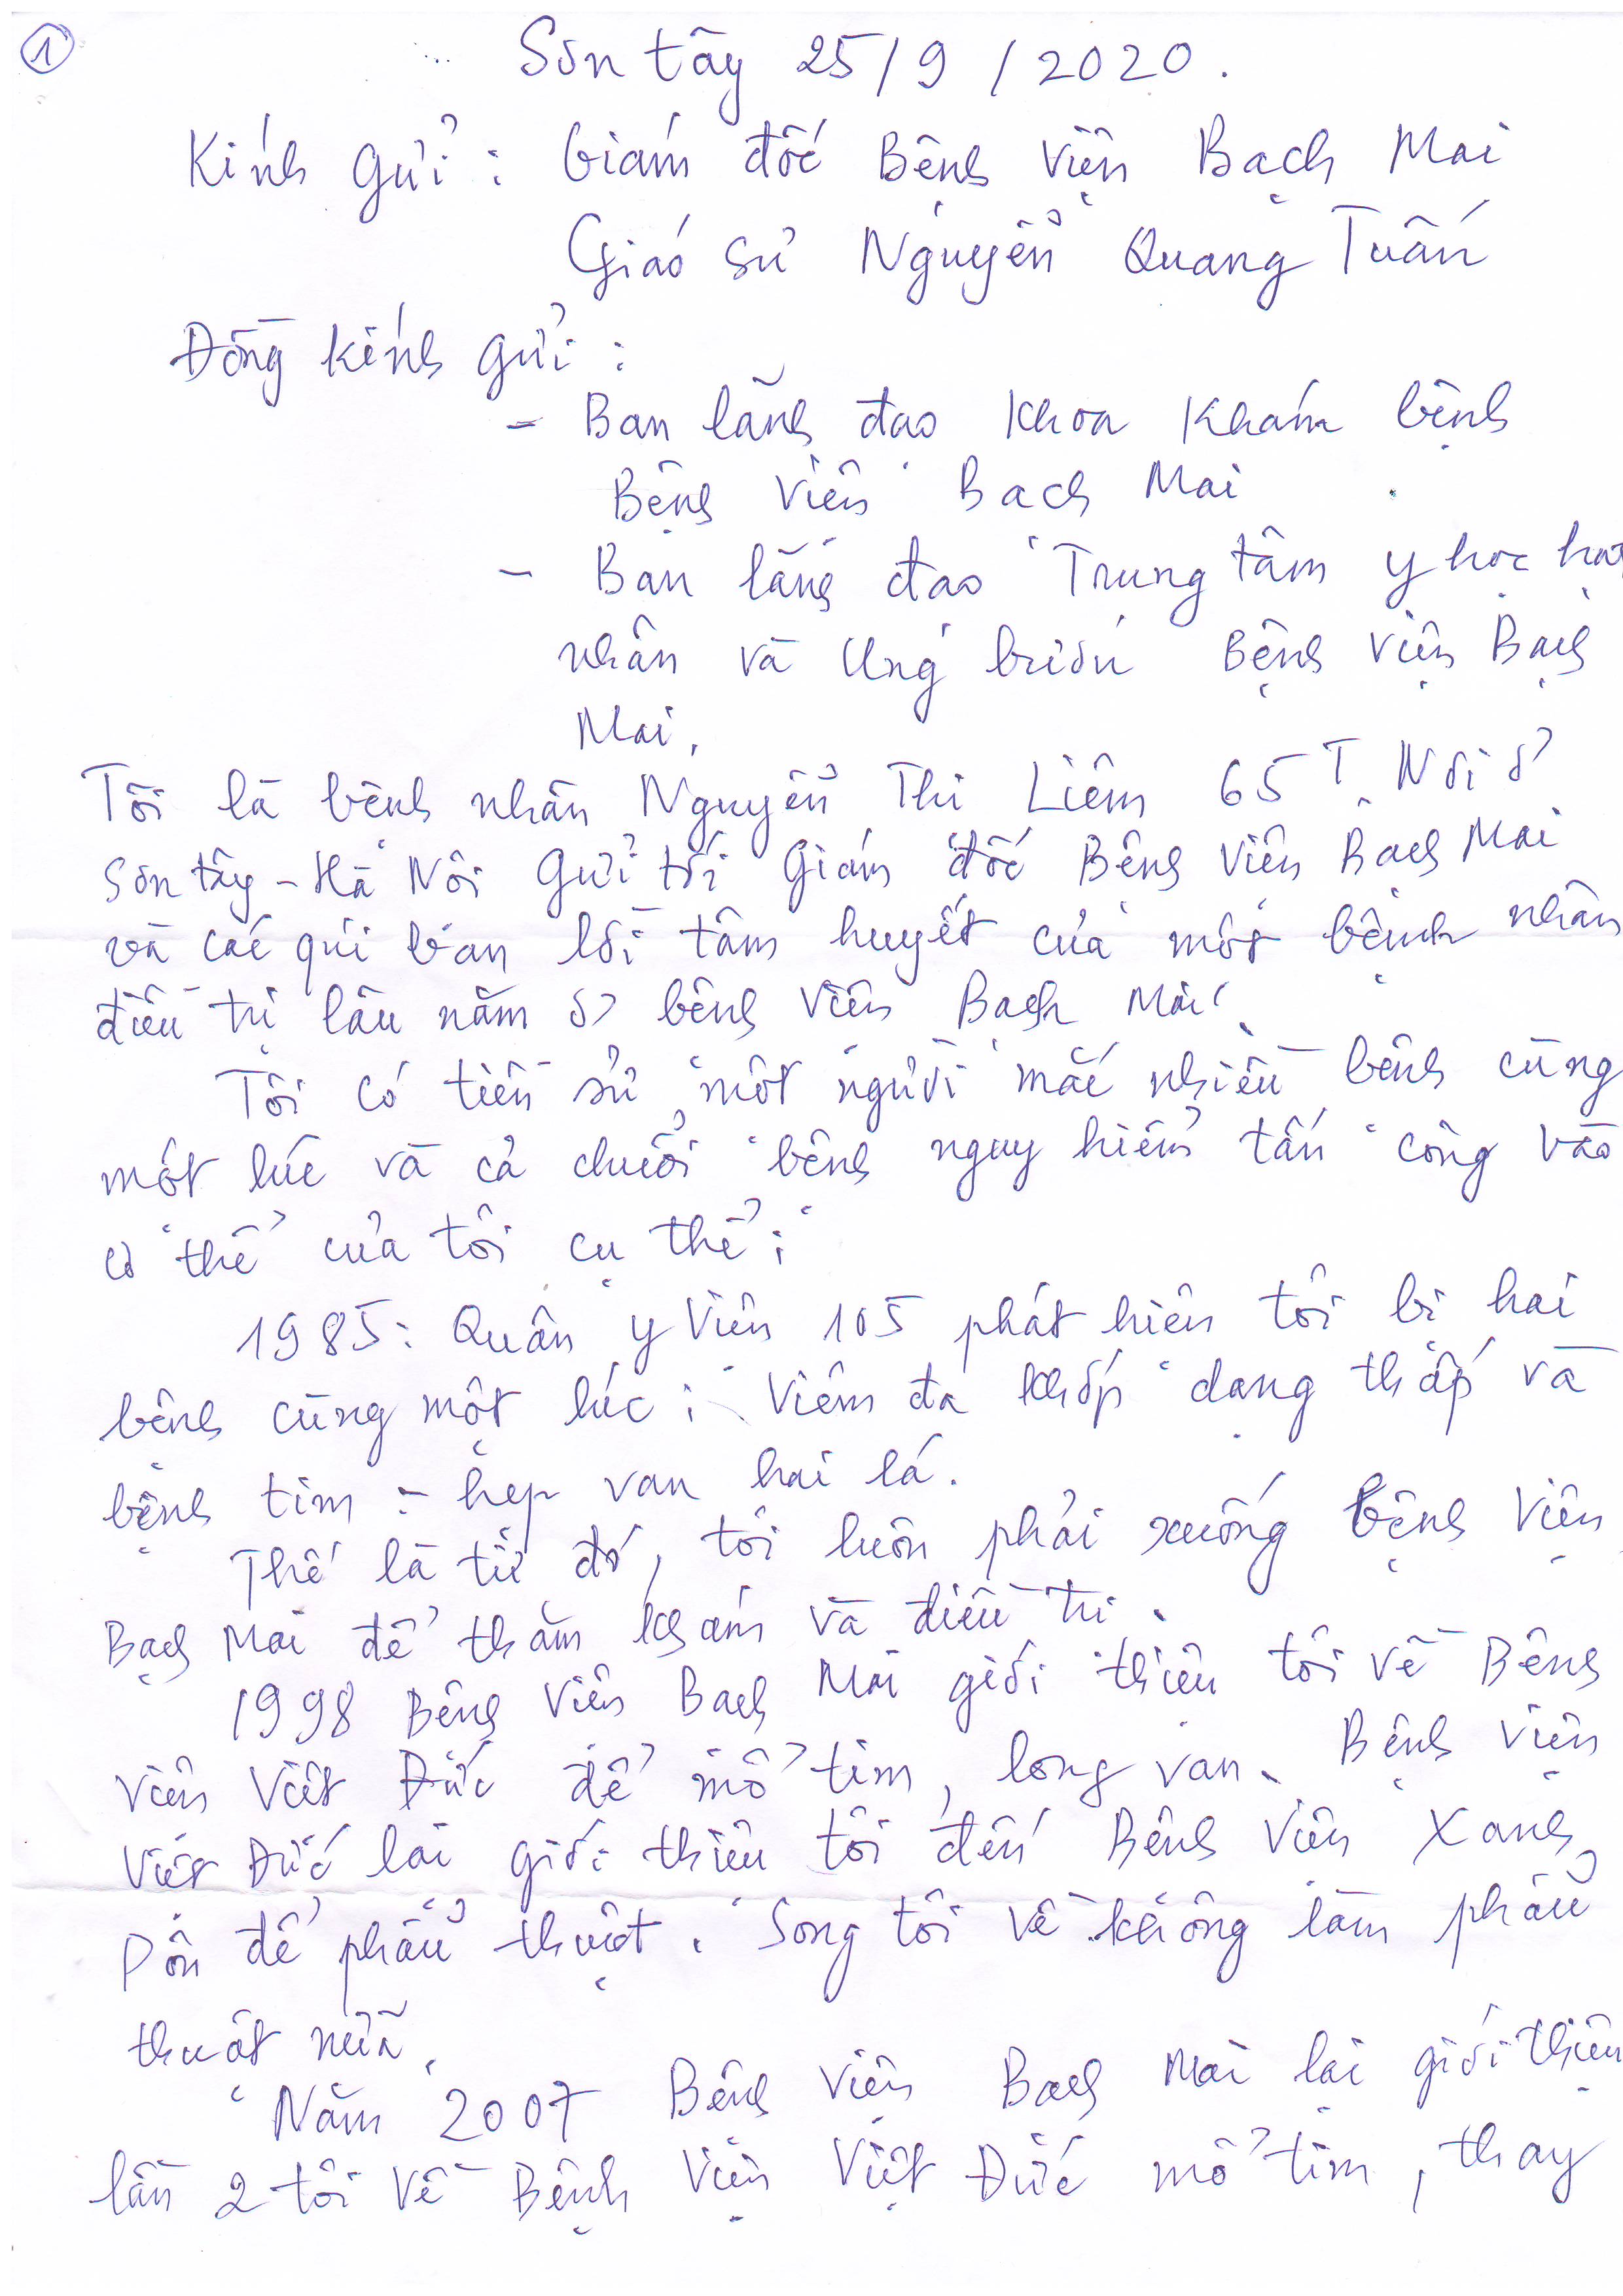 ①
Sơn tây 25/9/2020.
Kính gửi: Giám đốc Bệnh viện Bạch Mai
Giáo sư Nguyễn Quang Tuấn
Đồng kính gửi:
- Ban lãnh đạo khoa khám bệnh
Bệnh viện Bạch Mai
- Ban lãnh đạo Trung tâm y học hạt
nhân và Ung bướu Bệnh viện Bạch
Mai.
Tôi là bệnh nhân Nguyễn Thị Liêm 65T. Nơi ở
Sơn tây - Hà Nội gửi tới Giám đốc Bệnh viện Bạch Mai
và các quí ban lời tâm huyết của một bệnh nhân
điều trị lâu năm ở bệnh viện Bạch Mai.
Tôi có tiền sử một người mắc nhiều bệnh cùng
một lúc và cả chuỗi bệnh nguy hiểm tấn công vào
cơ thể của tôi cụ thể:
1985: Quân y viện 105 phát hiện tôi bị hai
bệnh cùng một lúc: Viêm đa khớp dạng thấp và
bệnh tim - hẹp van hai lá.
Thế là từ đó, tôi luôn phải xuống bệnh viện
Bạch Mai để thăm khám và điều trị.
1998 Bệnh viện Bạch Mai giới thiệu tôi về Bệnh
viện Việt Đức để mổ tim, long van. Bệnh viện
Việt Đức lại giới thiệu tôi đến Bệnh viện Xanh
Pôn để phẫu thuật. Song tôi về không làm phẫu
thuật nữa.
Năm 2007 Bệnh viện Bạch Mai lại giới thiệu
lần 2 tôi về Bệnh viện Việt Đức mổ tim, thay